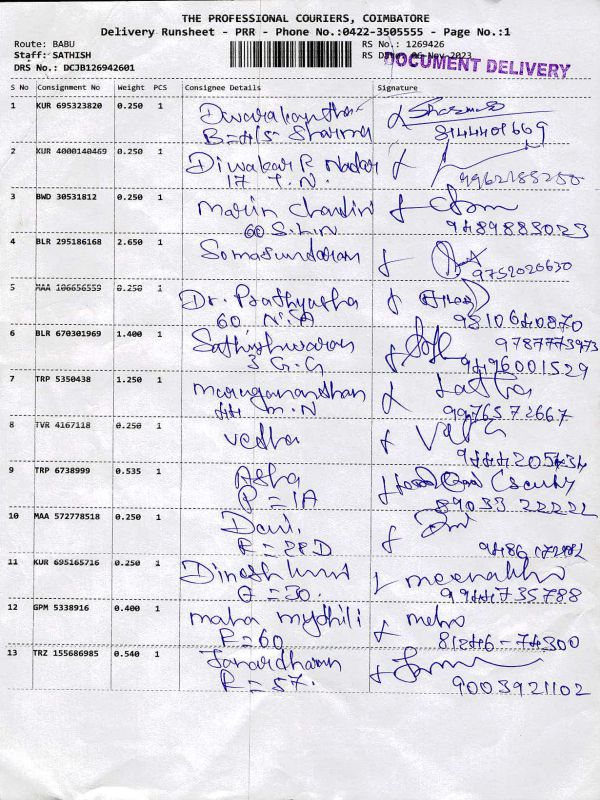 THE PROFESSIONAL COURIERS, COIMBATORE
Delivery Runsheet - PRR - Phone No.:0422-3505555 - Page No.:1
Route: BABU
Staff: SATHISH
DRS No.: DCJB126942601
RS No.: 1269426
RS Date: 06-Nov-2023
DOCUMENT DELIVERY
S No Consignment No Weight PCS Consignee Details Signature
1 KUR 695323820 0.250 1
B=415 Sharma
8144401669
2 KUR 4000140469 0.250 1 Diwakar R Nadar
17 T.N.
9962185250
3 BWD 30531812 0.250 1
60 S.L.N
9489883023
4 BLR 295186168 2.650 1 Somasundaram
9752020630
5 MAA 106656559 0.250 1 Dr. Prathyusha
60 N.A
9310640870
6 BLR 670301969 1.400 1 Sathishwaran
3 G.G
9787773973
9496001529
7 TRP 5350438 1.250 1 Muruganandhan
44 M.N
Latha
9976572667
8 TVR 4167118 0.250 1 Vedha
9 TRP 6738999 0.535 1 Asha
P=1A
89033 22222
10 MAA 572778518 0.250 1
R=28D
11 KUR 695165716 0.250 1
O=30.
9944735788
12 GPM 5338916 0.400 1 maha mydhili
P=60
81246-74300
13 TRZ 155686985 0.540 1 Janardhanan
R=57.
9003921102